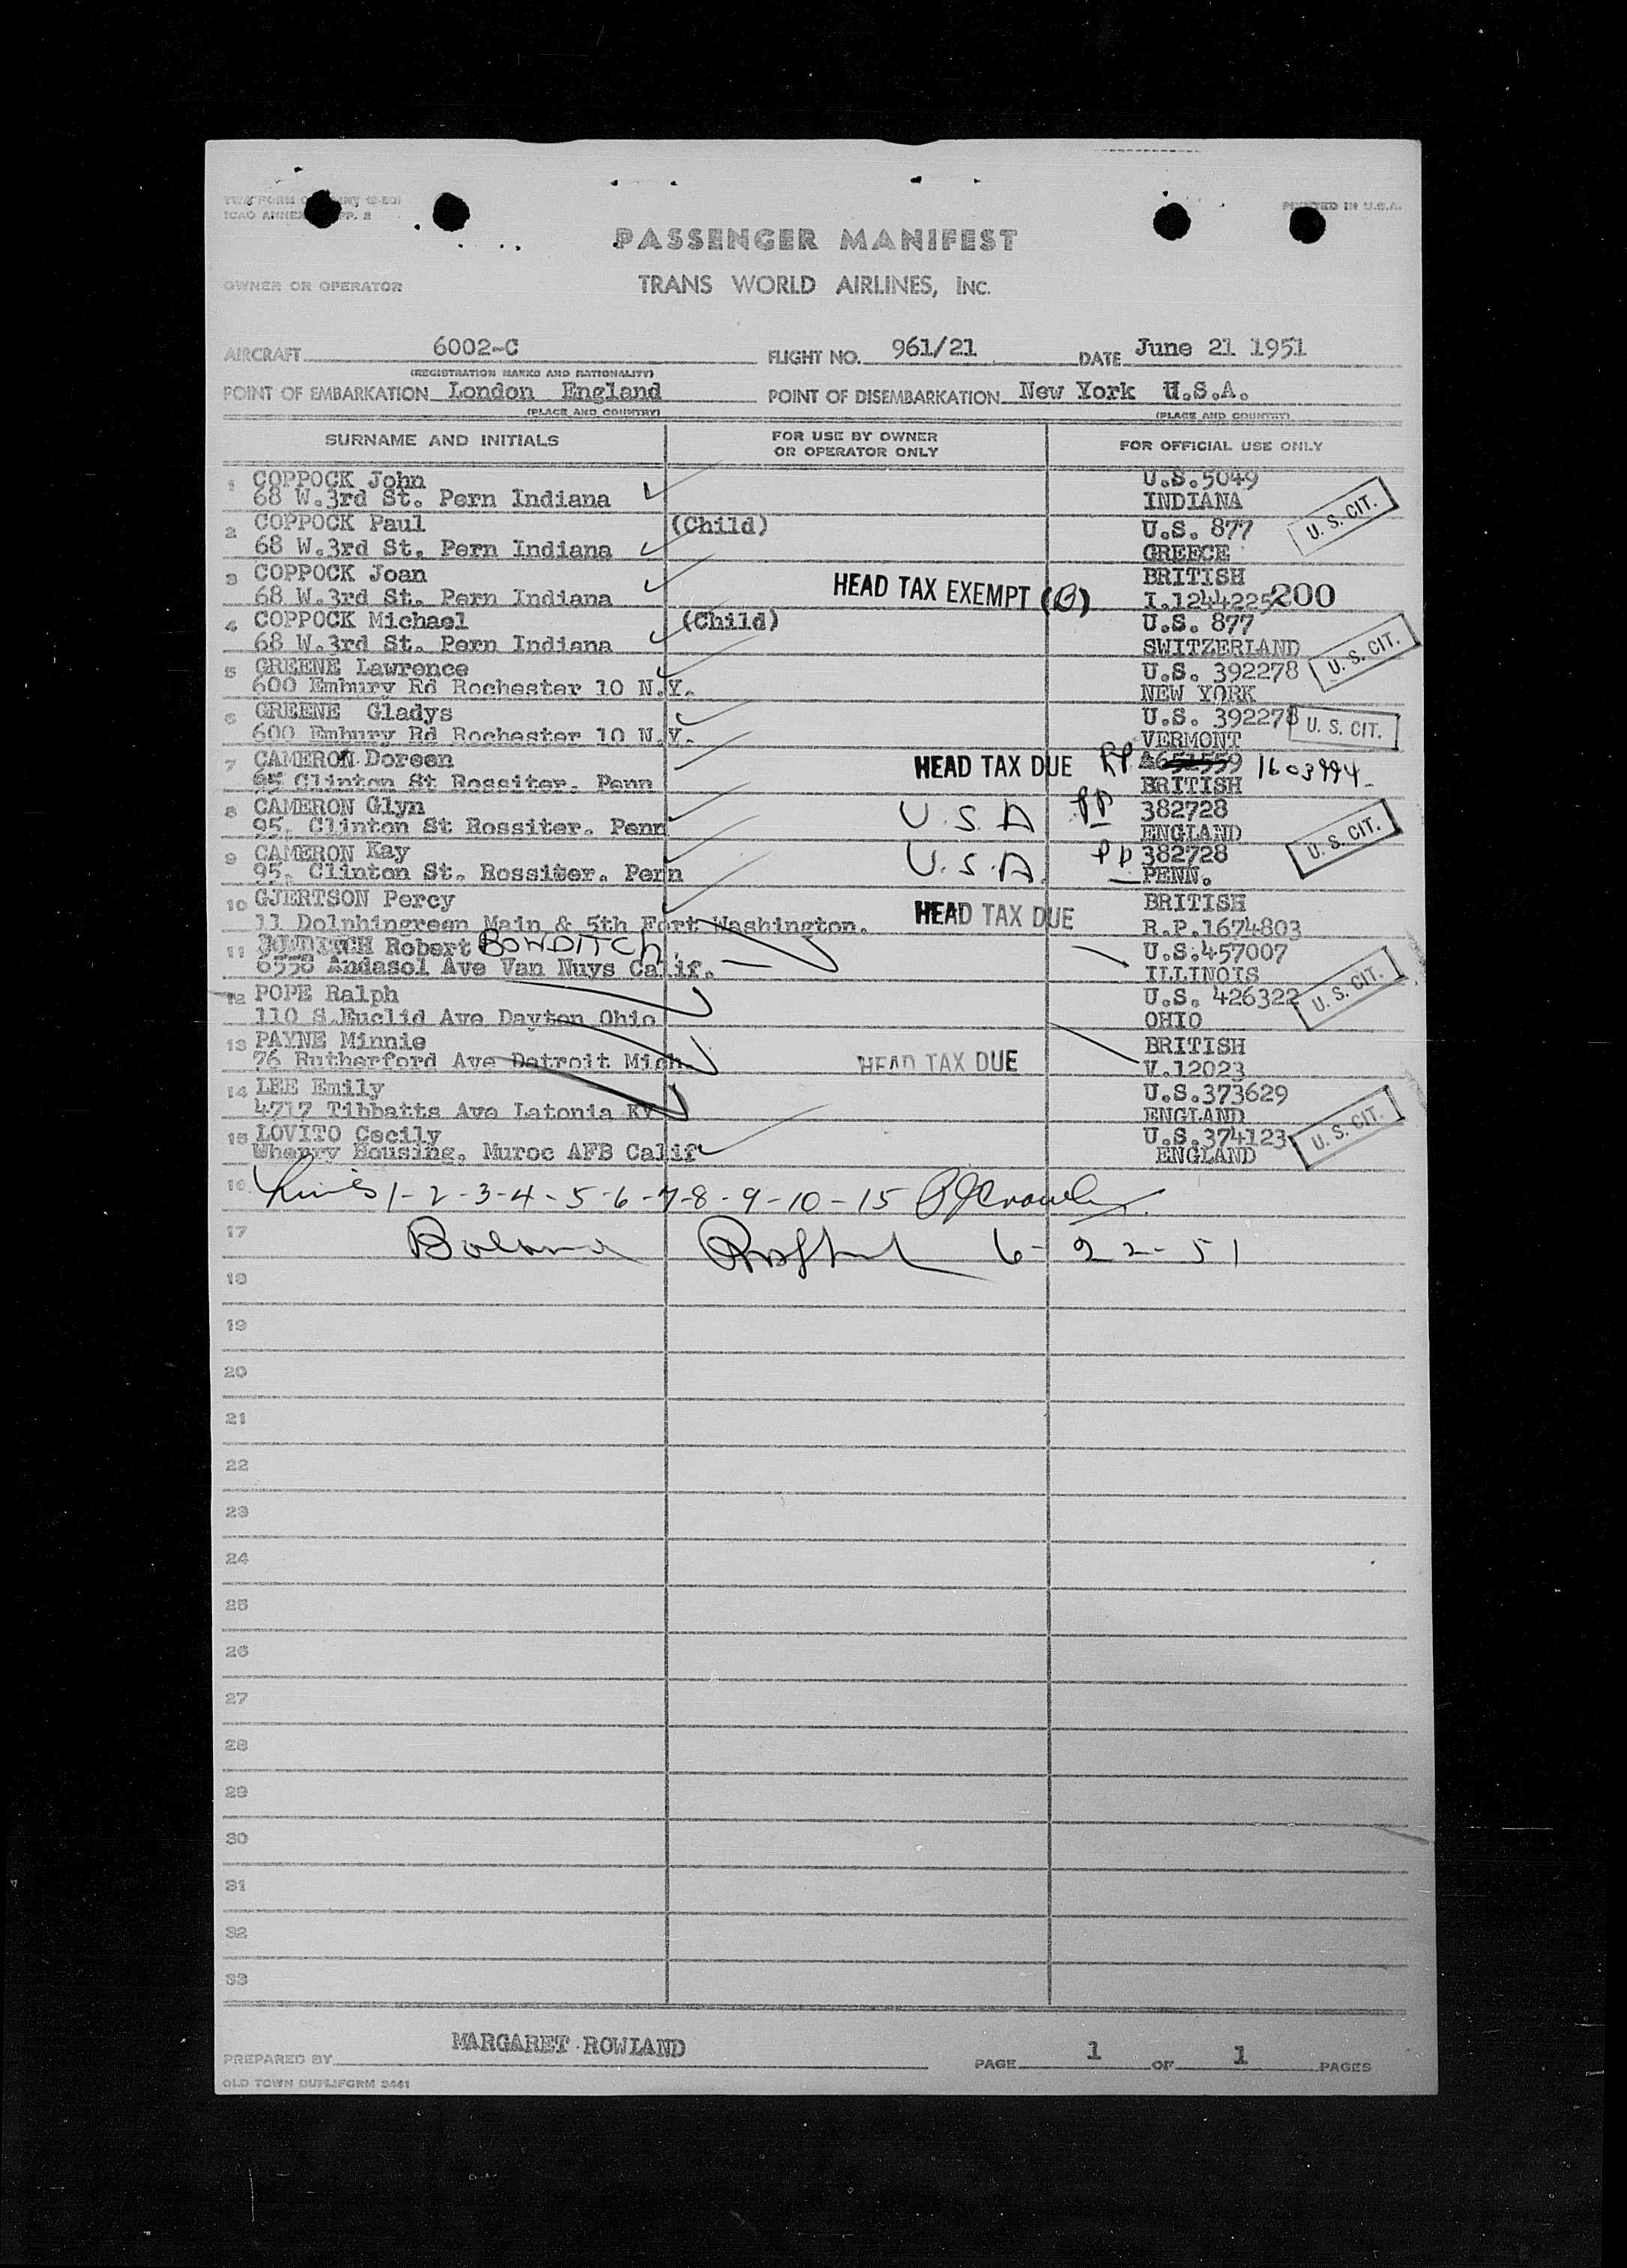 PRINTED IN U.S.A.
PASSENGER MANIFEST
OWNER OR OPERATOR
TRANS WORLD AIRLINES, INC.
AIRCRAFT 6002-C FLIGHT NO. 961/21 DATE June 21 1951
(REGISTRATION MARKS AND NATIONALITY)
POINT OF EMBARKATION London England POINT OF DISEMBARKATION New York U.S.A.
(PLACE AND COUNTRY) (PLACE AND COUNTRY)
SURNAME AND INITIALS FOR USE BY OWNER OR OPERATOR ONLY FOR OFFICIAL USE ONLY
1 COPPOCK John U.S.5049
68 W.3rd St. Pern Indiana INDIANA U.S. CIT.
2 COPPOCK Paul (Child) U.S. 877
68 W.3rd St. Pern Indiana GREECE
3 COPPOCK Joan BRITISH
68 W.3rd St. Pern Indiana HEAD TAX EXEMPT (B) I.1244225 200
4 COPPOCK Michael (Child) U.S. 877
68 W.3rd St. Pern Indiana SWITZERLAND U.S. CIT.
5 GREENE Lawrence U.S. 392278
600 Embury Rd Rochester 10 N.Y. NEW YORK
6 GREENE Gladys U.S. 392278 U.S. CIT.
600 Embury Rd Rochester 10 N.Y. VERMONT
7 CAMERON Doreen HEAD TAX DUE RP 1603994
95 Clinton St Rossiter. Penn BRITISH
8 CAMERON Glyn U.S.A PP 382728
95. Clinton St Rossiter. Penn ENGLAND U.S. CIT.
9 CAMERON Kay U.S.A. PP 382728
95. Clinton St. Rossiter. Penn PENN.
10 GJERTSON Percy HEAD TAX DUE BRITISH
11 Dolphingreen Main & 5th Fort Washington. R.P.1674803
11 Robert BOWDITCH U.S.457007
6558 Andasol Ave Van Nuys Calif. ILLINOIS
12 POPE Ralph U.S. 426322 U.S. CIT.
110 S.Euclid Ave Dayton Ohio OHIO
13 PAYNE Minnie BRITISH
76 Rutherford Ave Detroit Mich. HEAD TAX DUE V.12023
14 LEE Emily U.S.373629
4717 Tibbatts Ave Latonia KY ENGLAND
15 LOVITO Cecily U.S.374123 U.S. CIT.
Wherry Housing. Muroc AFB Calif ENGLAND
16 Lines 1-2-3-4-5-6-7-8-9-10-15
17 6-22-51
18
19
20
21
22
23
24
25
26
27
28
29
30
31
32
33
PREPARED BY MARGARET ROWLAND PAGE 1 OF 1 PAGES
OLD TOWN DUPLIFORM 3441